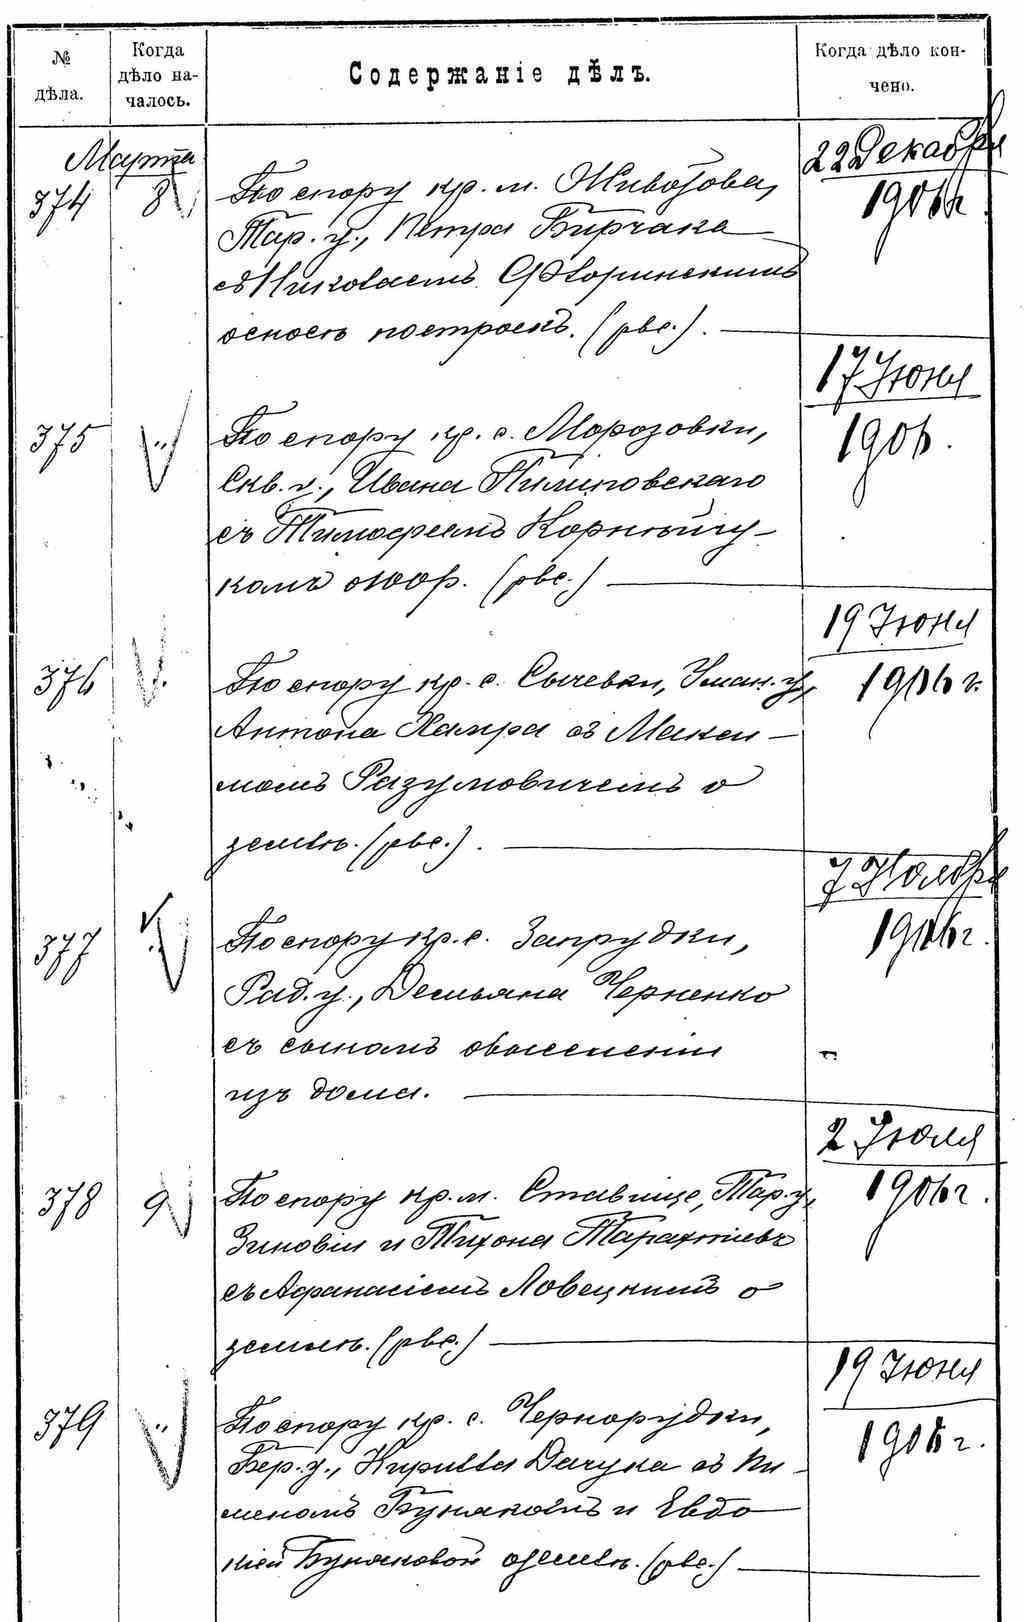 № дѣла.
Когда дѣло на-
чалось.
Содержаніе дѣлъ.
Когда дѣло кон-
чено.
Марта
22 Декабря
374 8 По спору кр. м. Животова, 1906 г.
Тар. у., Петра Бирчака
съ Николаемъ
о сносѣ построекъ. (рвс.).
17 Июня
375 " По спору кр. с. Морозовки, 1906.
Скв. у., Ивана Пилиповскаго
съ Тимофеемъ Корнѣйчу-
комъ (рвс.)
19 Июня
376 " По спору кр. с. Сычевки, Уман. у., 1906 г.
Антона Хамра съ Макси-
момъ Разумовичемъ о
землѣ. (рвс.).
7 Ноября
377 " По спору кр. с. Запрудки, 1906 г.
Рад. у., Демьяна Черненко
съ сыномъ о выселеніи
изъ дома.
2 Июля
378 9 По спору кр. м. Ставище, Тар. у., 1906 г.
Зиновія и Тихона
съ Афанасіемъ Ловецкимъ о
землѣ. (рвс.)
19 Июня
379 " По спору кр. с. Чернорудки, 1906 г.
Бер. у., Кирилла Дачука съ Пи-
меномъ Буняковымъ и Евдо
кіей Буняковой о землѣ. (рвс.)